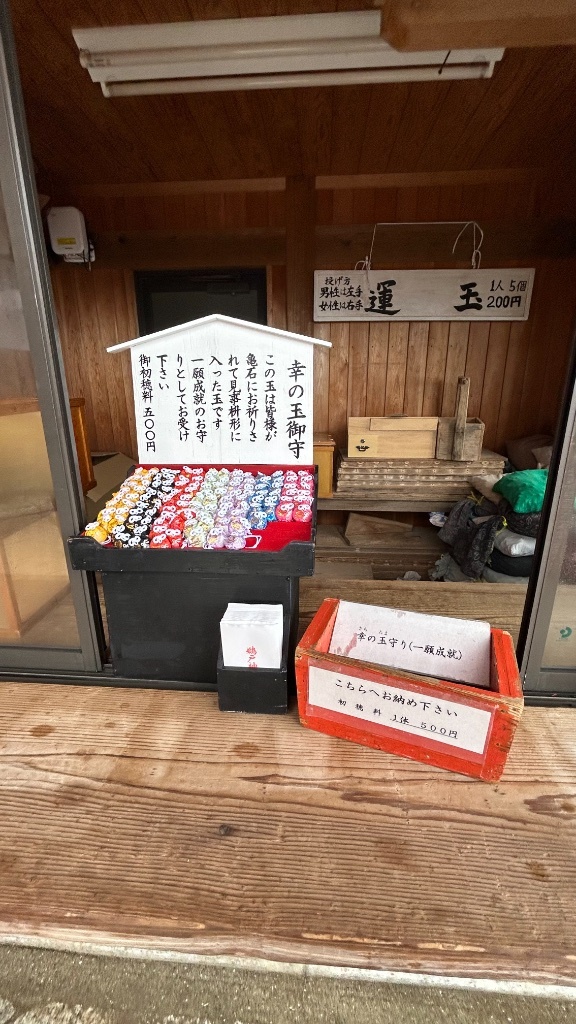 投げ方
男性は左手
女性は右手
運玉
1人5個
200円
幸の玉御守
この玉は皆様が
亀石にお祈りさ
れて見事枡形に
入った玉です
一願成就のお守
りとしてお受け
下さい
御初穂料 五〇〇円
幸の玉守り(一願成就)
こちらへお納め下さい
初穂料 1体 500円